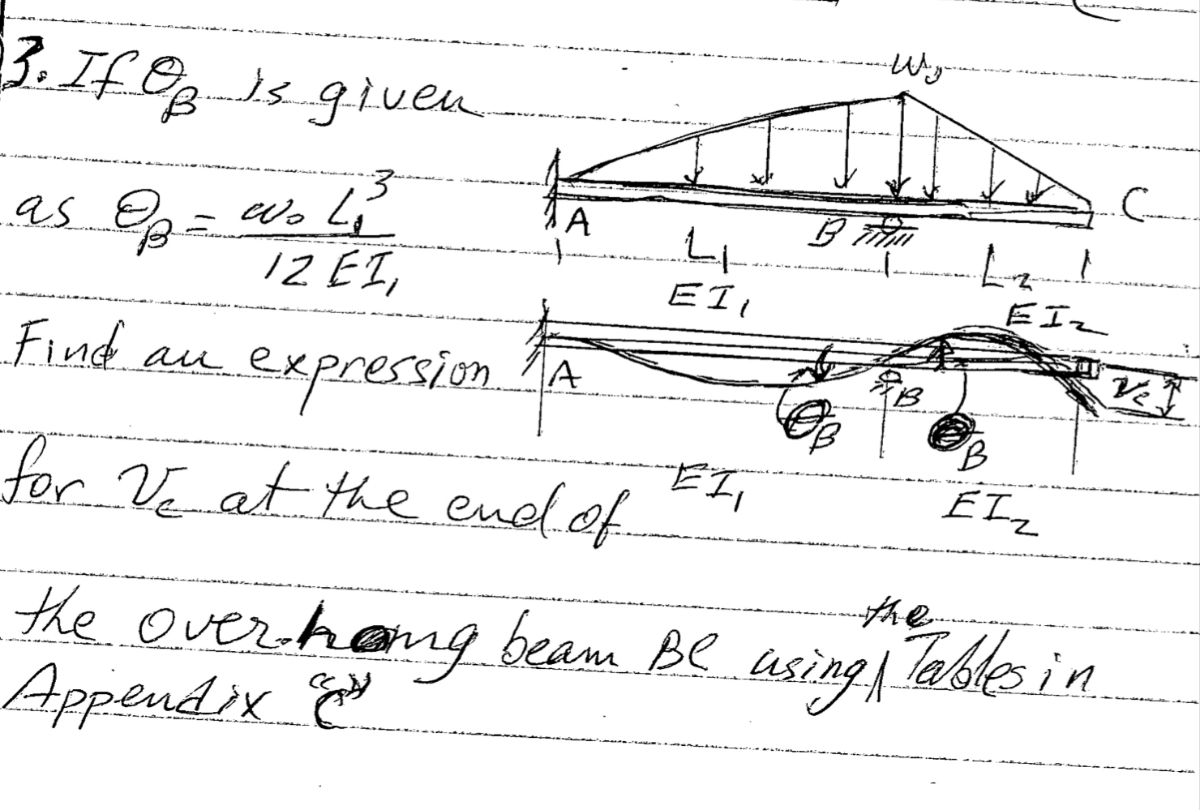 3. If θB is given
as θB = w₀ L₁³
12 EI₁
Find an expression
for Vc at the end of
the overhang beam BC using the Tables in
Appendix "C"
W₀
A
B
C
L₁
L₂
EI₁
EI₂
A
B
Vc
θB
θB
EI₁
EI₂